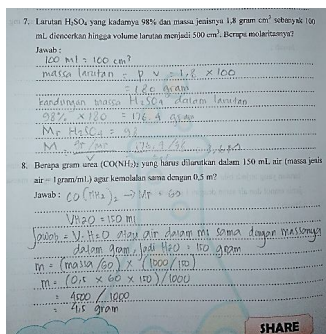 7. Larutan H₂SO₄ yang kadarnya 98% dan massa jenisnya 1,8 gram cm³ sebanyak 100
mL diencerkan hingga volume larutan menjadi 500 cm³. Berapa molaritasnya?
Jawab :
100 ml = 100 cm³
massa larutan = ρ v = 1,8 × 100
= 180 gram
kandungan massa H₂SO₄ dalam larutan
98% × 180 = 176,4 gram
Mr H₂SO₄ = 98
M = gr/mr 176,4/98 3,6 M
V
8. Berapa gram urea (CO(NH₂)₂ yang harus dilarutkan dalam 150 mL air (massa jenis
air = 1gram/mL) agar kemolalan sama dengan 0,5 m?
Jawab : CO(NH₂)₂ → Mr = 60
VH₂O = 150 ml
Jawab = V. H₂O atau air dalam ml sama dengan massanya
dalam gram, Jadi H₂O = 150 gram
m = (massa/60) × (1000/150)
m = (0,5 × 60 × 150)/1000
= 4500/1000
= 4,5 gram
SHARE